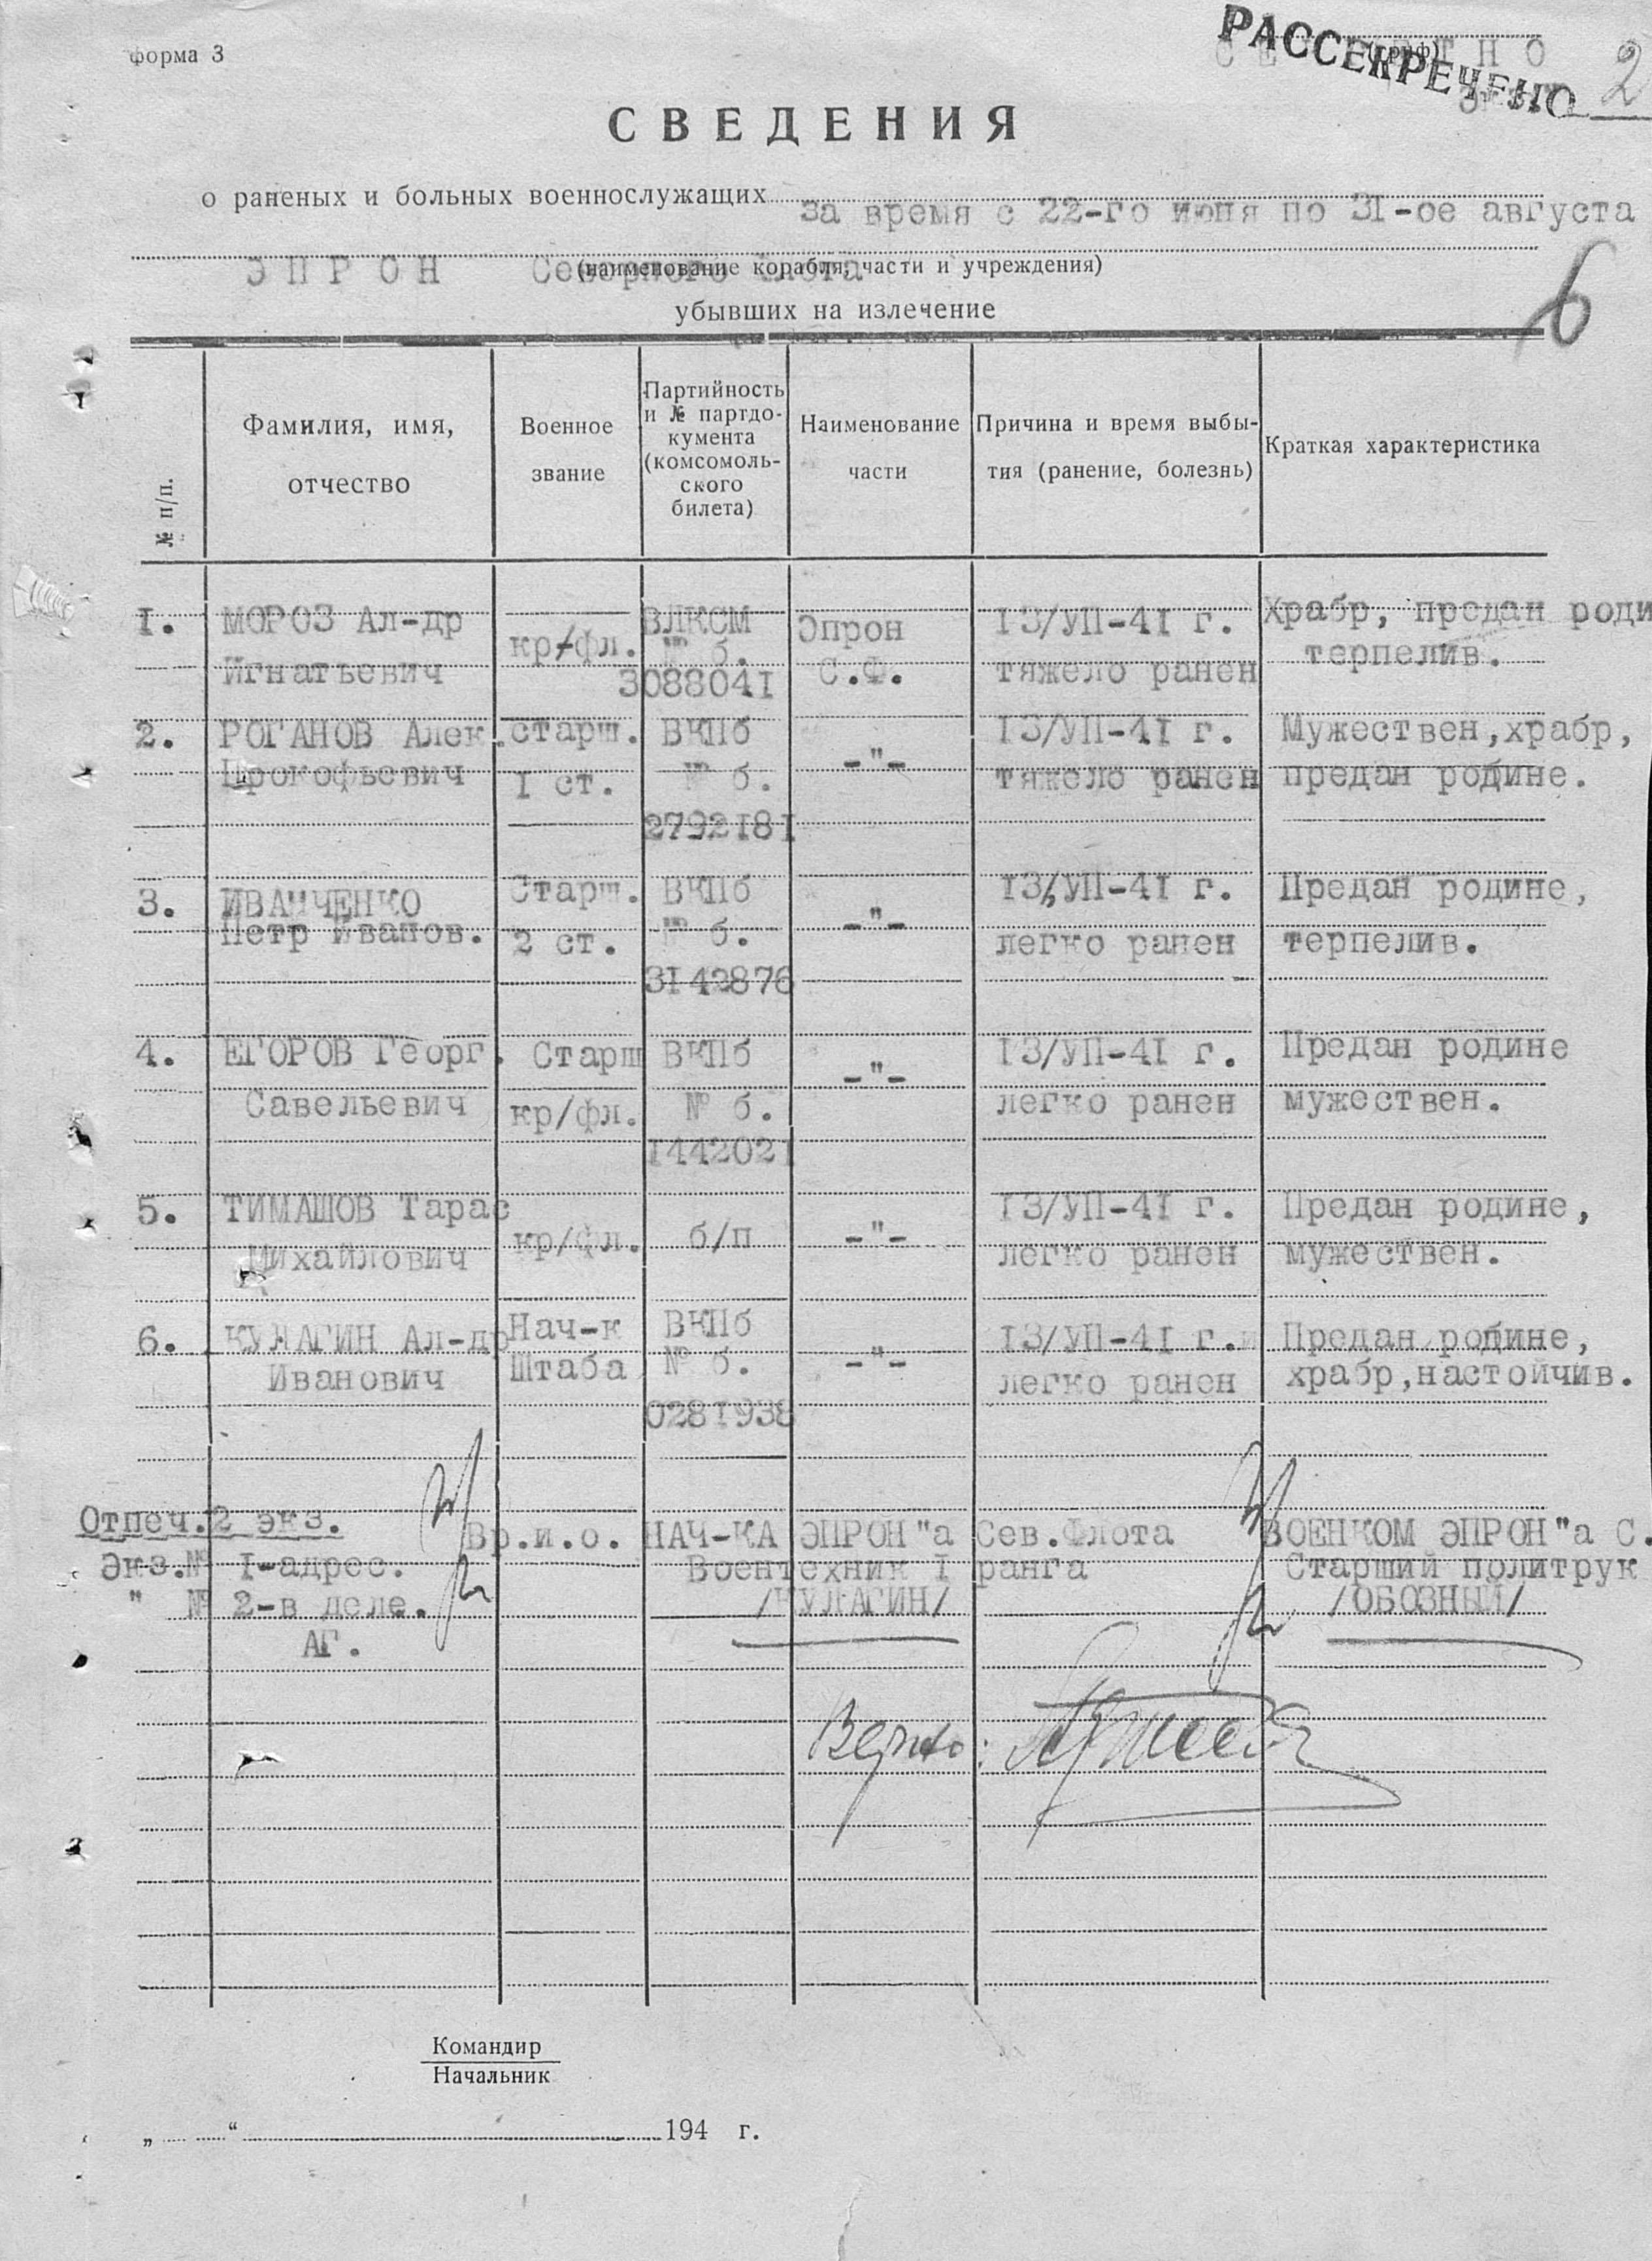 форма 3
РАССЕКРЕЧЕНО
(гриф)
2
СВЕДЕНИЯ
о раненых и больных военнослужащих за время с 22-го июня по 31-ое августа
ЭПРОН Северного флота
(наименование корабля, части и учреждения)
6
убывших на излечение
№ п/п.
Фамилия, имя,
отчество
Военное
звание
Партийность
и № партдо-
кумента
(комсомоль-
ского
билета)
Наименование
части
Причина и время выбы-
тия (ранение, болезнь)
Краткая характеристика
1. МОРОЗ Ал-др кр/фл. ВЛКСМ Эпрон 13/УП-41 г. Храбр, предан роди
Игнатьевич № б. С.Ф. тяжело ранен терпелив.
3088041
2. РОГАНОВ Алек. старш. ВКПб -"- 13/УП-41 г. Мужествен,храбр,
Прокофьевич 1 ст. № б. тяжело ранен предан родине.
2792181
3. ИВАНЧЕНКО Старш. ВКПб -"- 13/УП-41 г. Предан родине,
Петр Иванов. 2 ст. № б. легко ранен терпелив.
3142876
4. ЕГОРОВ Георг. Старш ВКПб -"- 13/УП-41 г. Предан родине
Савельевич кр/фл. № б. легко ранен мужествен.
1442021
5. ТИМАШОВ Тарас кр/фл. б/п -"- 13/УП-41 г. Предан родине,
Михайлович легко ранен мужествен.
6. КУЛАГИН Ал-др Нач-к ВКПб -"- 13/УП-41 г. Предан родине,
Иванович Штаба № б. легко ранен храбр,настойчив.
0281938
Отпеч.2 экз. Вр.и.о. НАЧ-КА ЭПРОН"а Сев.Флота ВОЕНКОМ ЭПРОН"а С.
Экз.№ 1-адрес. Воентехник I ранга Старший политрук
" № 2-в деле. /КУЛАГИН/ /ОБОЗНЫЙ/
АГ.
Верно:
Командир
Начальник
„ “ 194 г.